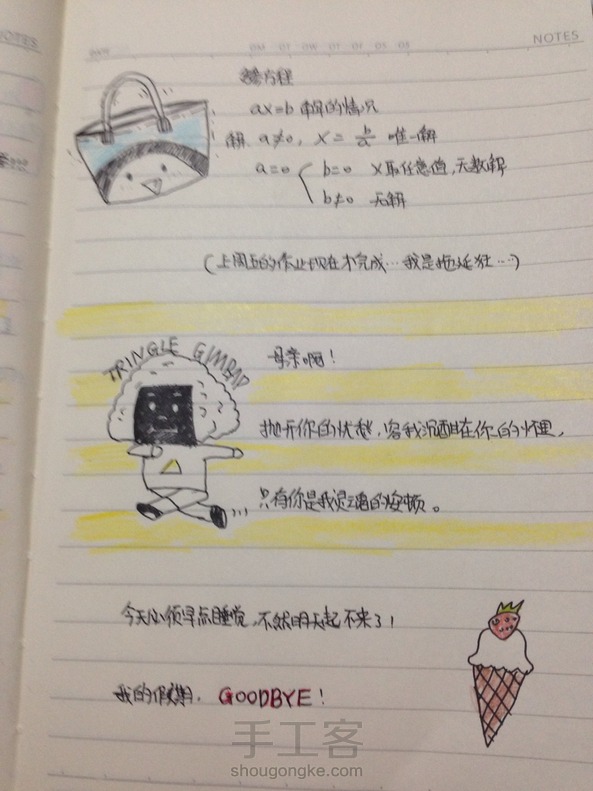 NOTES
方程
ax=b 解的情况
解 a≠0, x=b/a 唯一解
a=0 { b=0 x取任意值,无数解
b≠0 无解
(上周五的作业现在才完成…我是拖延狂…)
TRINGLE GIMBAP
母亲啊!
抛开你的忧愁,容我沉酣在你的怀里,
只有你是我灵魂的安顿。
今天必须早点睡觉,不然明天起不来了!
我的假期, GOODBYE!
手工客
shougongke.com